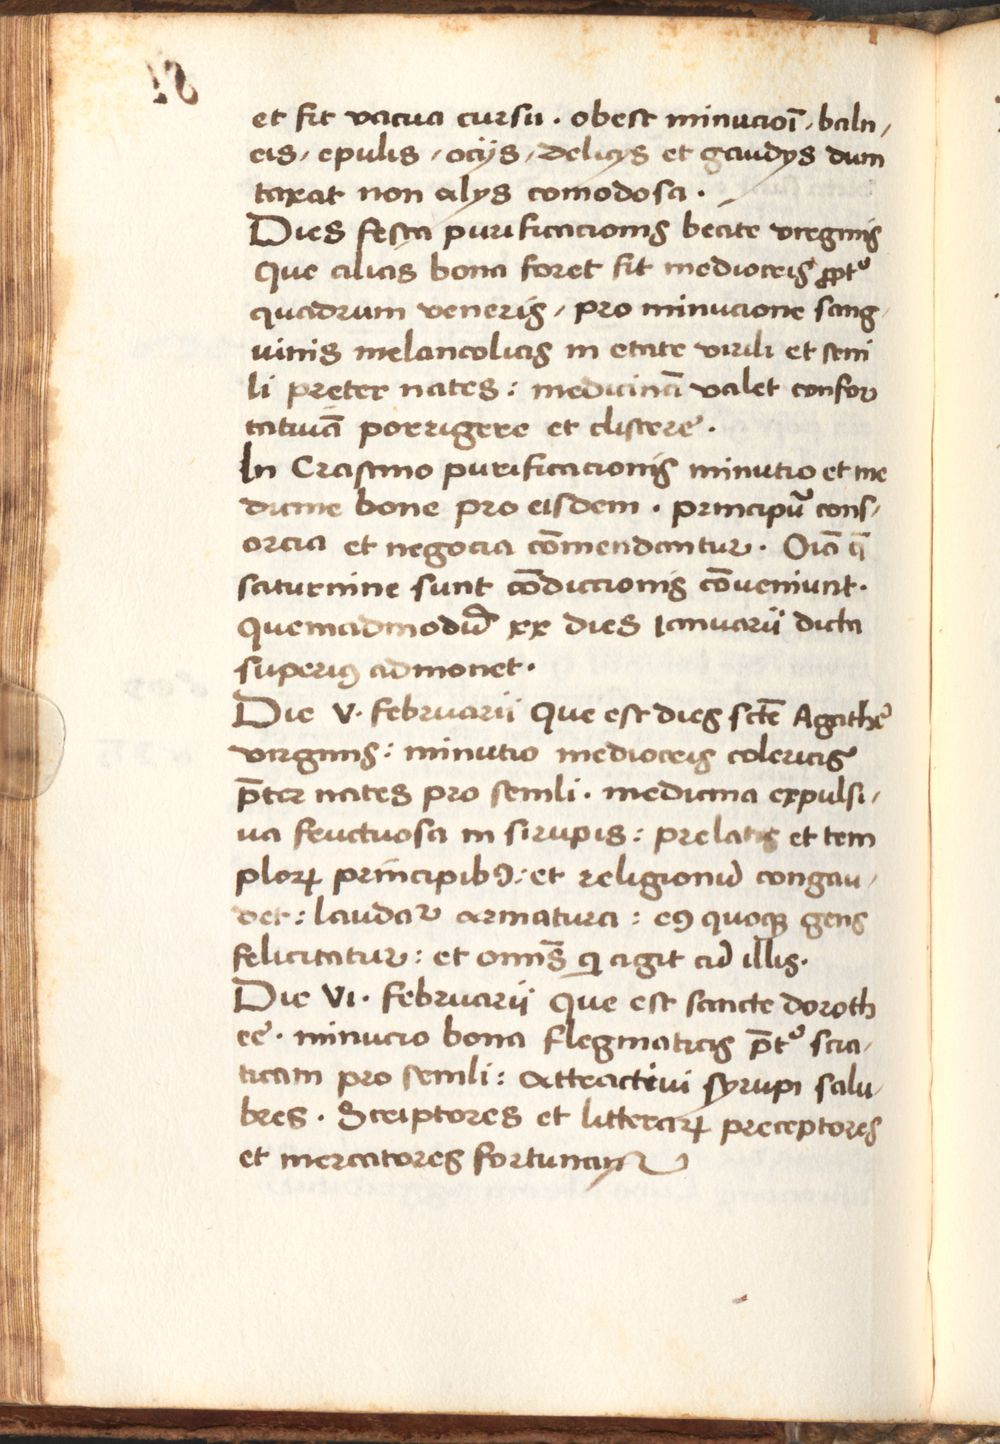 et fit vacua cursu . obest minucioī , baln,
eis, epulis, ocijs, delicijs et gaudys dum
taxat non alys comodosa .
Dies festa purificacionis beate virginis
Que alias bona foret fit mediocris ꝓpt᾽
quadrum veneris, pro minucione sang,
uinis melancolicis in etate virili et seni
li preter nates : medicinā valet confor
tatiuā porrigere et clistere .
In Crastino purificacionis minutio et me
dicine bone pro eisdem . principū cons,
orcia et negocia cōmendantur . Oīa q̄
saturnine sunt cōdiccionis cōveniunt .
Quemadmodū xx dies Ianuarii dicta
superiꝰ admonet .
Die V. februarii Que est dies sctē Agathe
virginis : minutio mediocris colericis
p̄ter nates pro semli . medicina expulsi,
ua fructuosa in sirupis : prelatis et tem
ploꝝ principibꝰ : et religionū congau,
det : laudat᾽ armatura : eiꝰ quoqꝫ gens
felicitatur : et omīs qi agit cū illis .
Die VI. februarii Que est sancte doroth
ee . minucio bona flegmaticis p̄t᾽ scia,
ticam pro semli : attractiui syrupi salu,
bres . Scriptores et litteraꝝ preceptores
et mercatores fortunant᾽